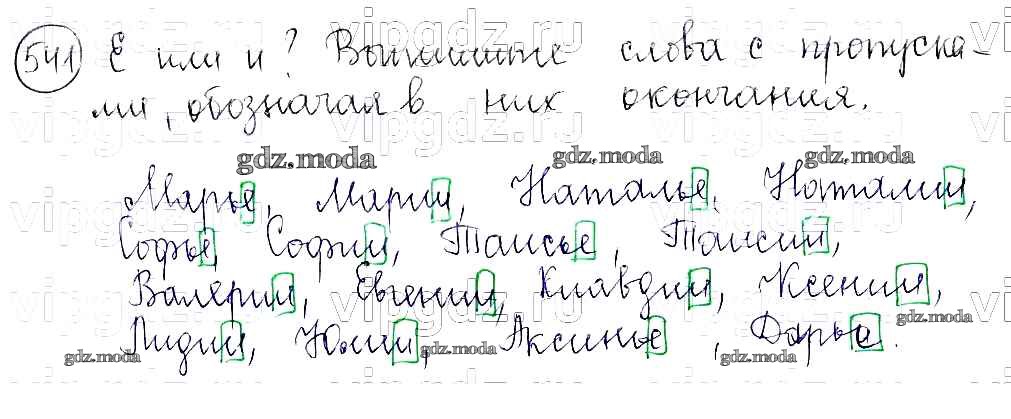 541 Е или и? Выпишите слова с пропуска-
ми, обозначая в них окончания.
gdz.moda gdz.moda gdz.moda
Марье, Марии, Наталье, Наталии,
Софье, Софии, Таисье, Таисии,
Валерии, Евгении, Клавдии, Ксении,
Лидии, Юлии, Аксинье, Дарье.
gdz.moda gdz.moda gdz.moda gdz.moda
vipgdz.ru vipgdz.ru vipgdz.ru